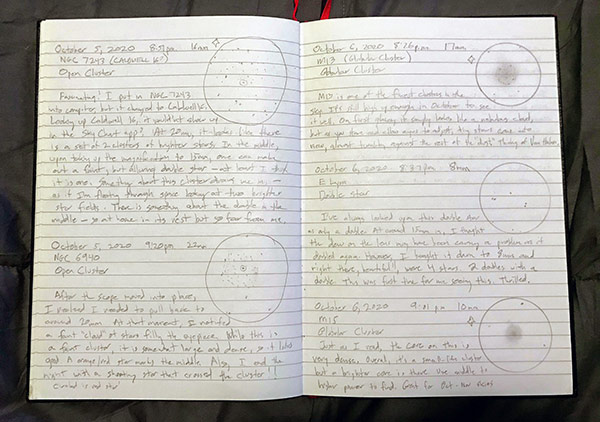 October 5, 2020 8:51pm 16mm
NGC 7243 (CALDWELL 16)
Open Cluster
Fascinating! I put in NGC 7243
into computer, but it changed to Caldwell 16.
Looking up Caldwell 16, it wouldn't show up
in the Sky Chart app? At 20mm, it looks like there
is a set of 2 clusters of brighter stars. In the middle,
upon taking up the magnification to 15mm, one can make
out a faint, but alluring double star - at least I think
it is one. Something about this cluster draws me in -
as if I'm floating through space looking at two brighter
star fields. There is something about the double in the
middle - so at home in its nest but so far from me.
October 5, 2020 9:20pm 22mm
NGC 6940
Open Cluster
After the scope moved into place,
I realized I needed to pull back to
around 20mm. At that moment, I notified
a faint "cloud" of stars fill the eyepiece. While this is
a faint cluster, it is somewhat large and dense, so it looks
good. A orange/red star marks the middle. Also, I end the
night with a shooting star that crossed the cluster!!
Circled is red star
October 6, 2020 8:26pm 17mm
M13 (Globular Cluster)
Globular Cluster
M13 is one of the finest clusters in the
sky. It's still high up enough in October to see
it well. On first glance it simply looks like a patchy cloud,
but as you allow eyes to adjust, tiny stars come into
view, almost against the rest of the "dust".
October 6, 2020 8:37pm 8mm
E Lyra
Double star
I've always looked upon this double star
as only a double. At around 15mm in, I thought
the dew on the lens may have been causing a problem as it
doubled again. However, I brought it down to 8mm and
right there, beautifully, were 4 stars. 2 doubles with a
double. This was first time for me seeing this. Thrilled.
October 6, 2020 9:01pm 10mm
M15
Globular Cluster
Just as I read, the core on this is
very dense. Overall, it's a small-like cluster
but a brighter core is there. Use middle to
higher power to find. Great for Oct-Nov